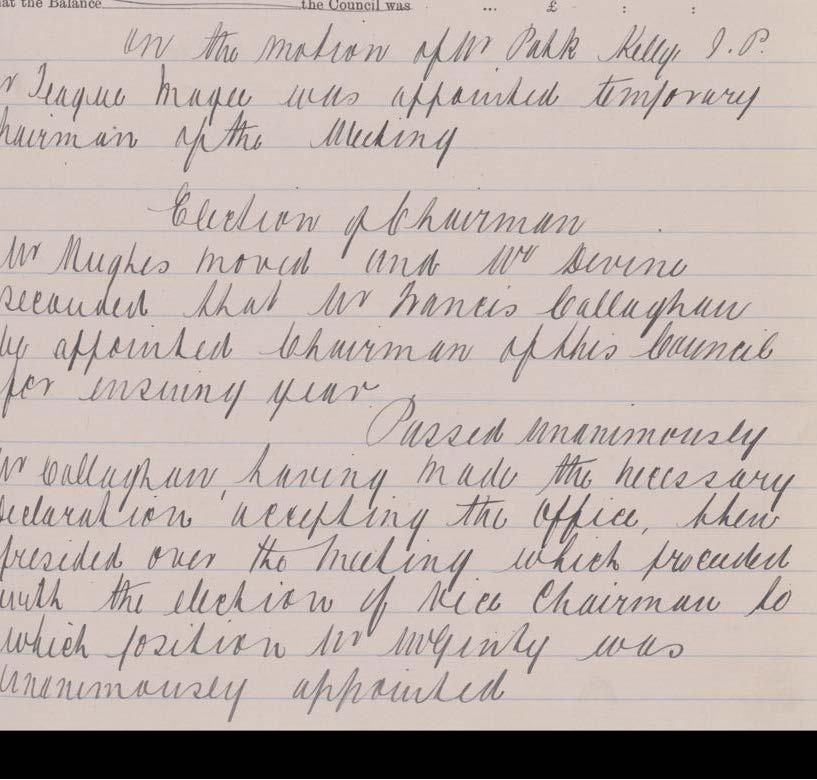 at the Balance the Council was ... £ : :
On the motion of Mr Patk Kelly J.P.
r Teague Magee was appointed temporary
hairman of the Meeting
Election of Chairman
Mr Hughes moved and Mr Devine
seconded that Mr Francis Callaghan
be appointed Chairman of this Council
for ensuing year
Passed unanimously
Mr Callaghan, having made the necessary
declaration accepting the office, then
presided over the Meeting which proceeded
with the election of Vice Chairman to
which position Mr McGinty was
unanimously appointed